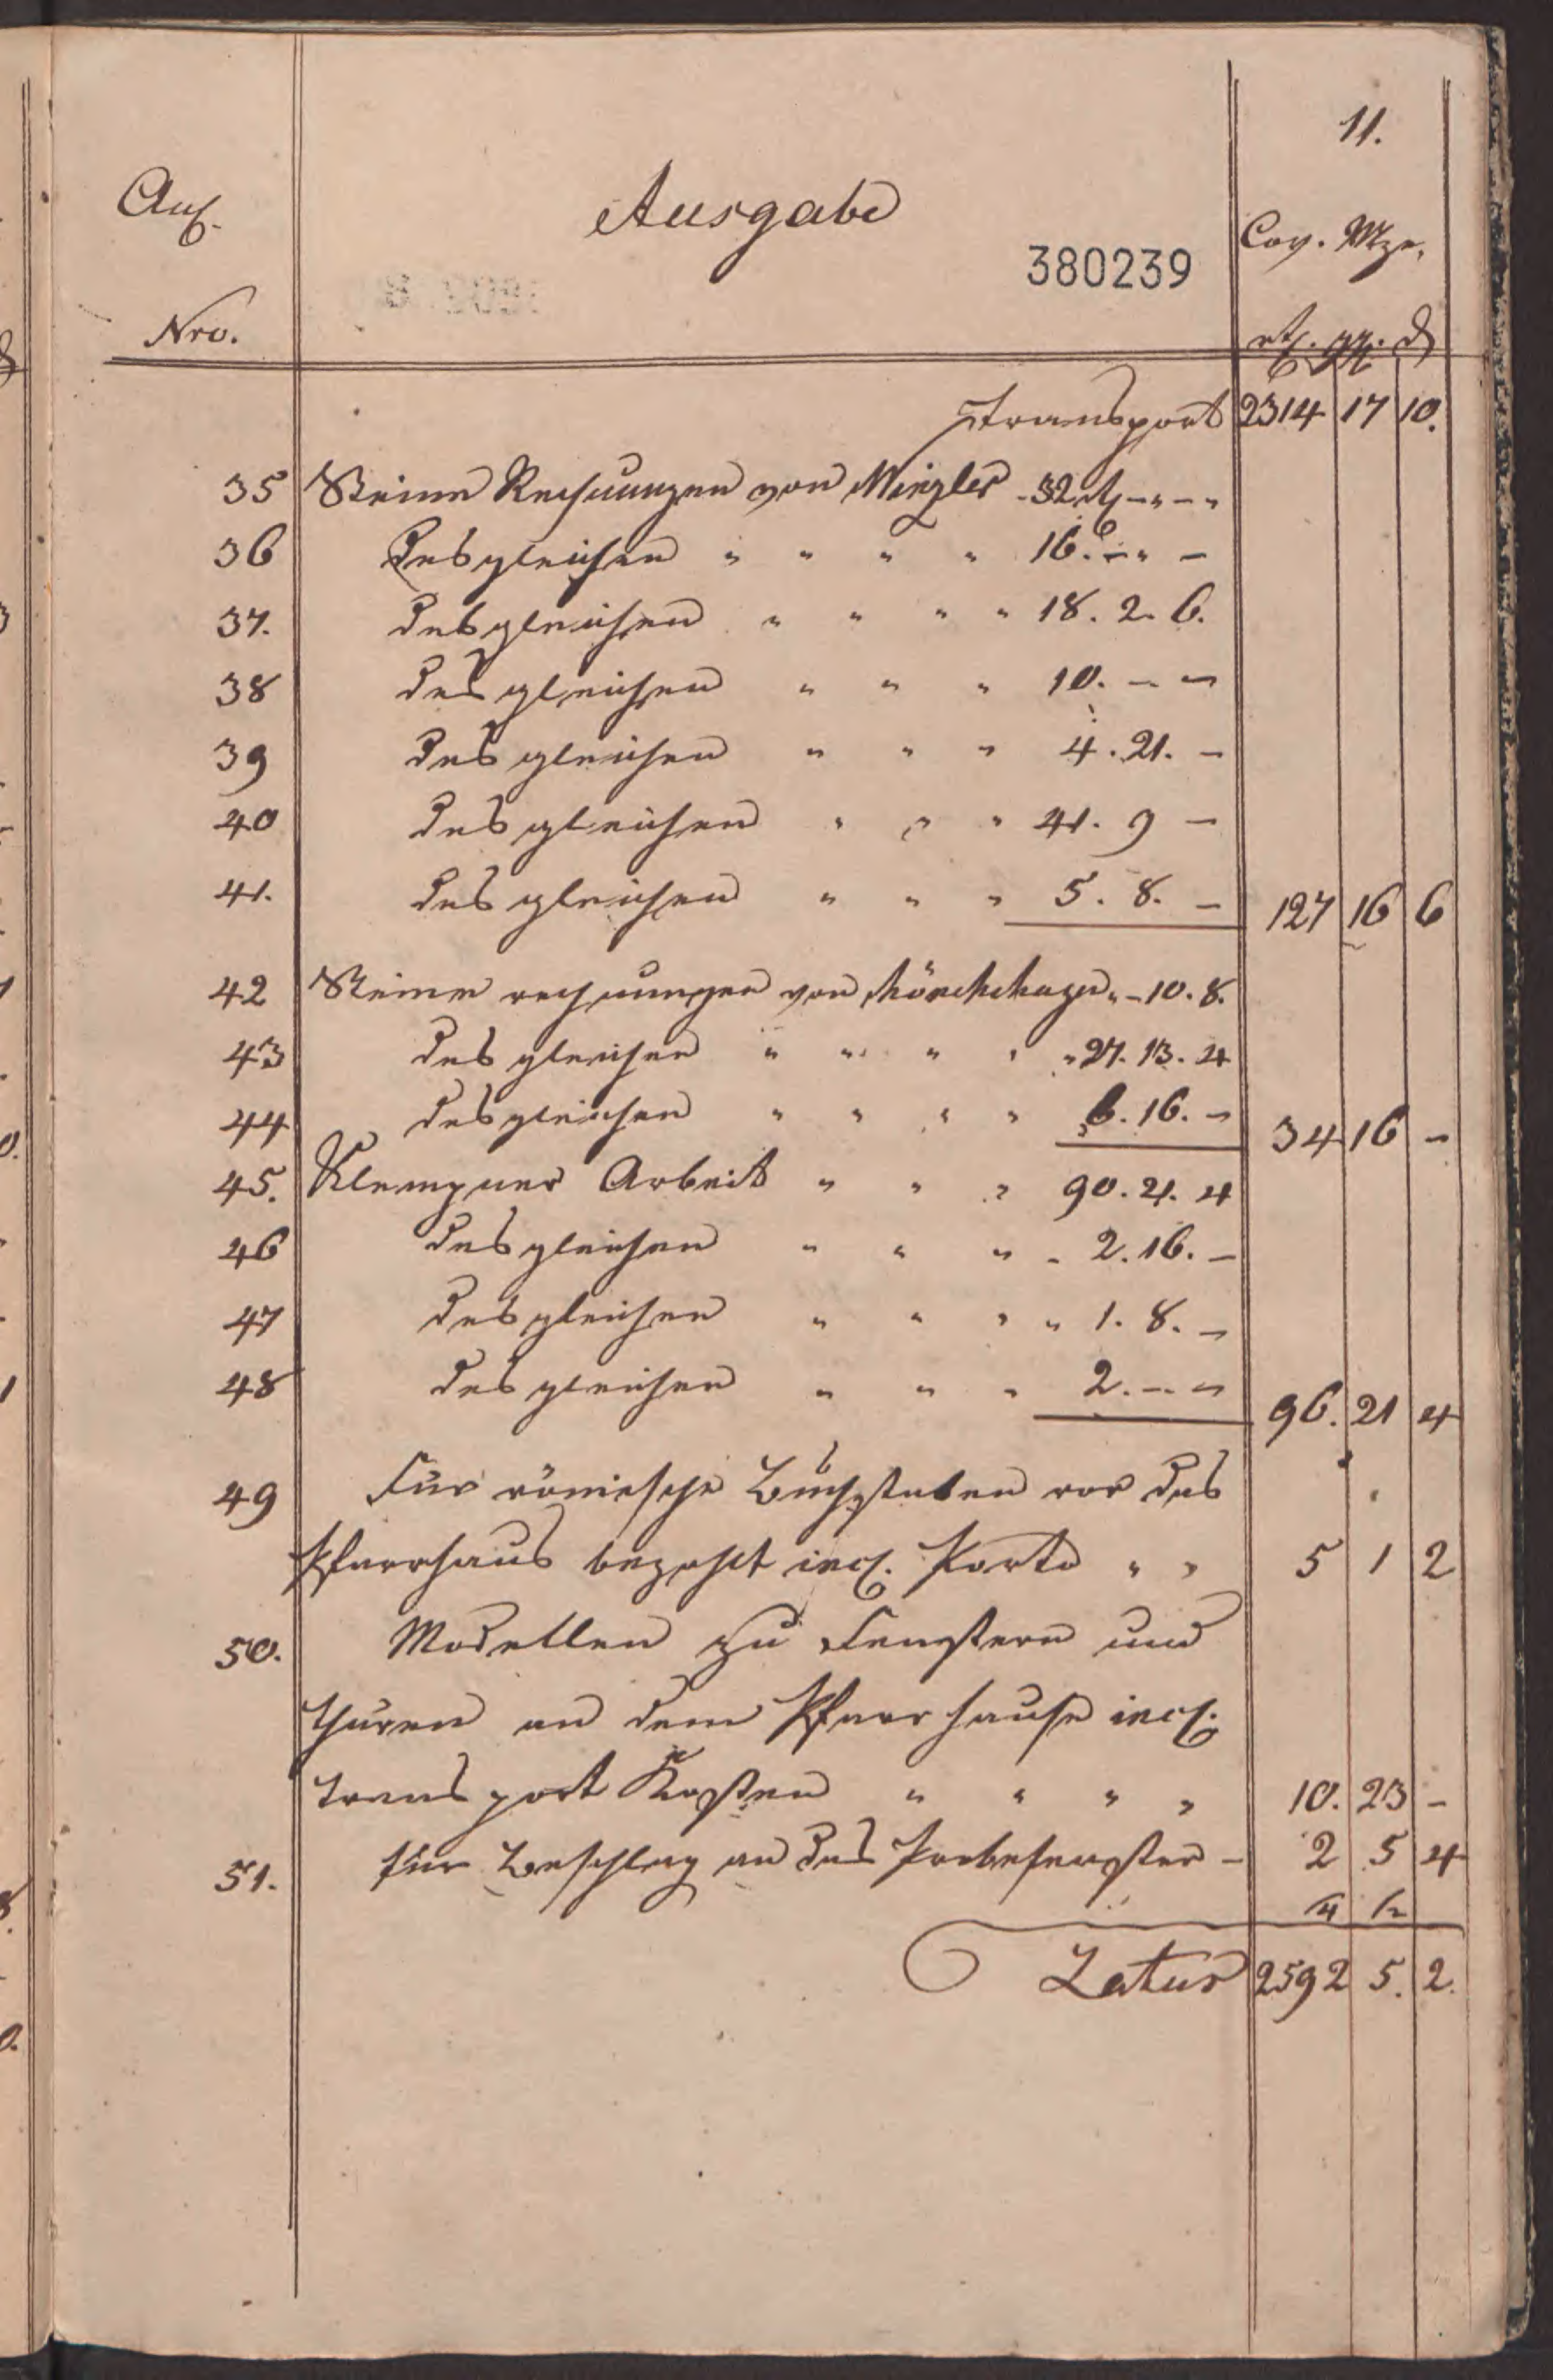 11.
Anl. Ausgabe Cov. Mze.
380239
Nro. rtl. ggr. d
Transport 2314 17 10.
35 Steine Rechnungen von Minzler - 32 rtl - " - "
36 desgleichen " " " " 16. - " -
37. desgleichen " " " " 18. 2. 6.
38 desgleichen " " " 10. - -
39 desgleichen " " " 4. 21. -
40 desgleichen " " " 41. 9 -
41. desgleichen " " " 5. 8. - 127 16 6
42 Steine rechnungen von Mönchhagen " - 10. 8.
43 desgleichen " " " " " 27. 13. 4
44 desgleichen " " " " 6. 16. - 34 16 -
45. Klempner Arbeit " " " 90. 21. 4
46 desgleichen " " " - 2. 16. -
47 desgleichen " " " " 1. 8. -
48 desgleichen " " " 2. - - 96. 21 4
49 Für römische Buchstaben vor das
Pfarrhaus bezahlt incl. Porto " " 5 1 2
50. Modellen zu Fenstern und
thüren an dem Pfarrhause incl.
transport Kosten " " " " 10. 23 -
51. für Beschlag an das Probefenster - 2 5 4
Latus 2592 5. 2.